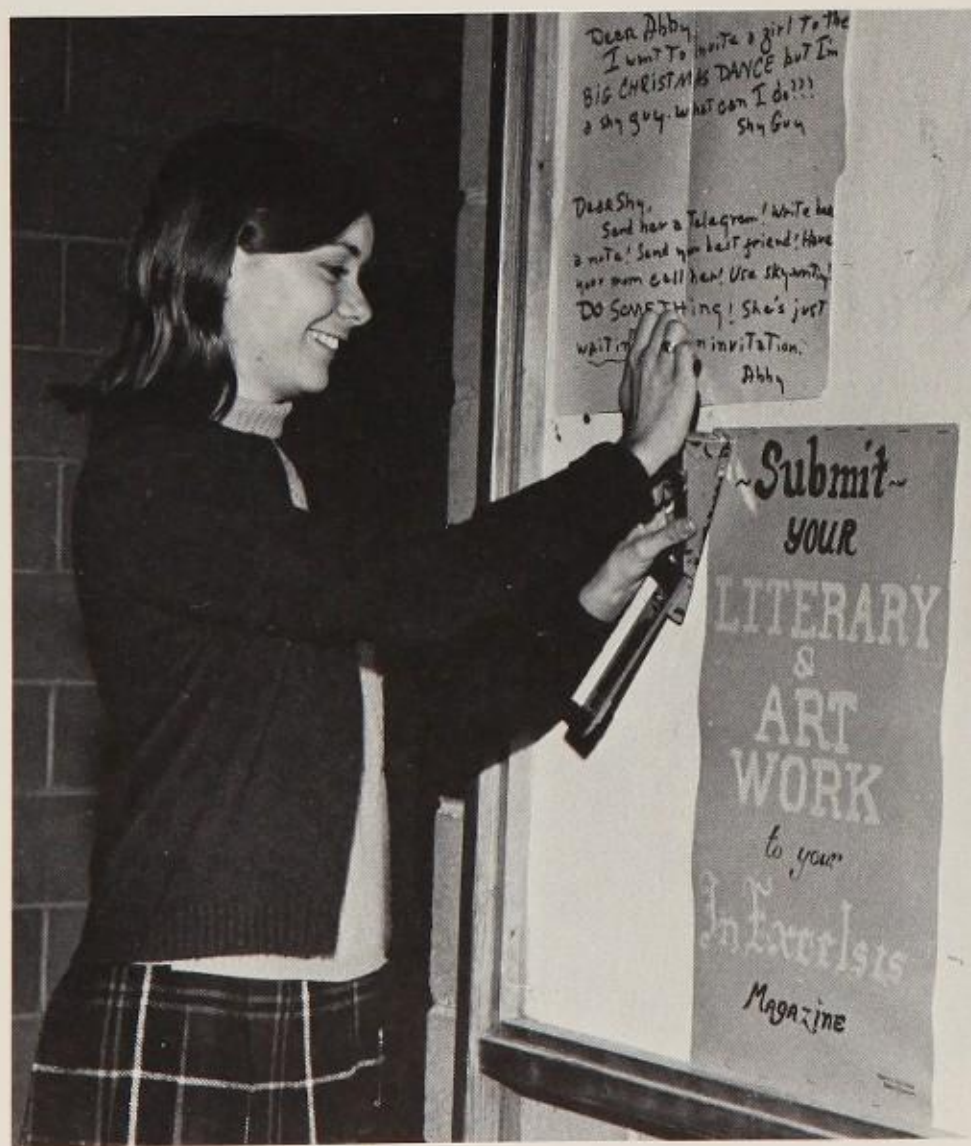 Dear Abby,
I want to invite a girl to the
BIG CHRISTMAS DANCE but I'm
a shy guy. What can I do???
Shy Guy
Dear Shy,
Send her a Telegram! Write her
a note! Send your best friend! Have
your mom call her! Use skywriting!
DO SOMETHING! She's just
invitation.
Abby
~Submit~
YOUR
LITERARY
&
ART
WORK
to your
In Excelsis
MAGAZINE